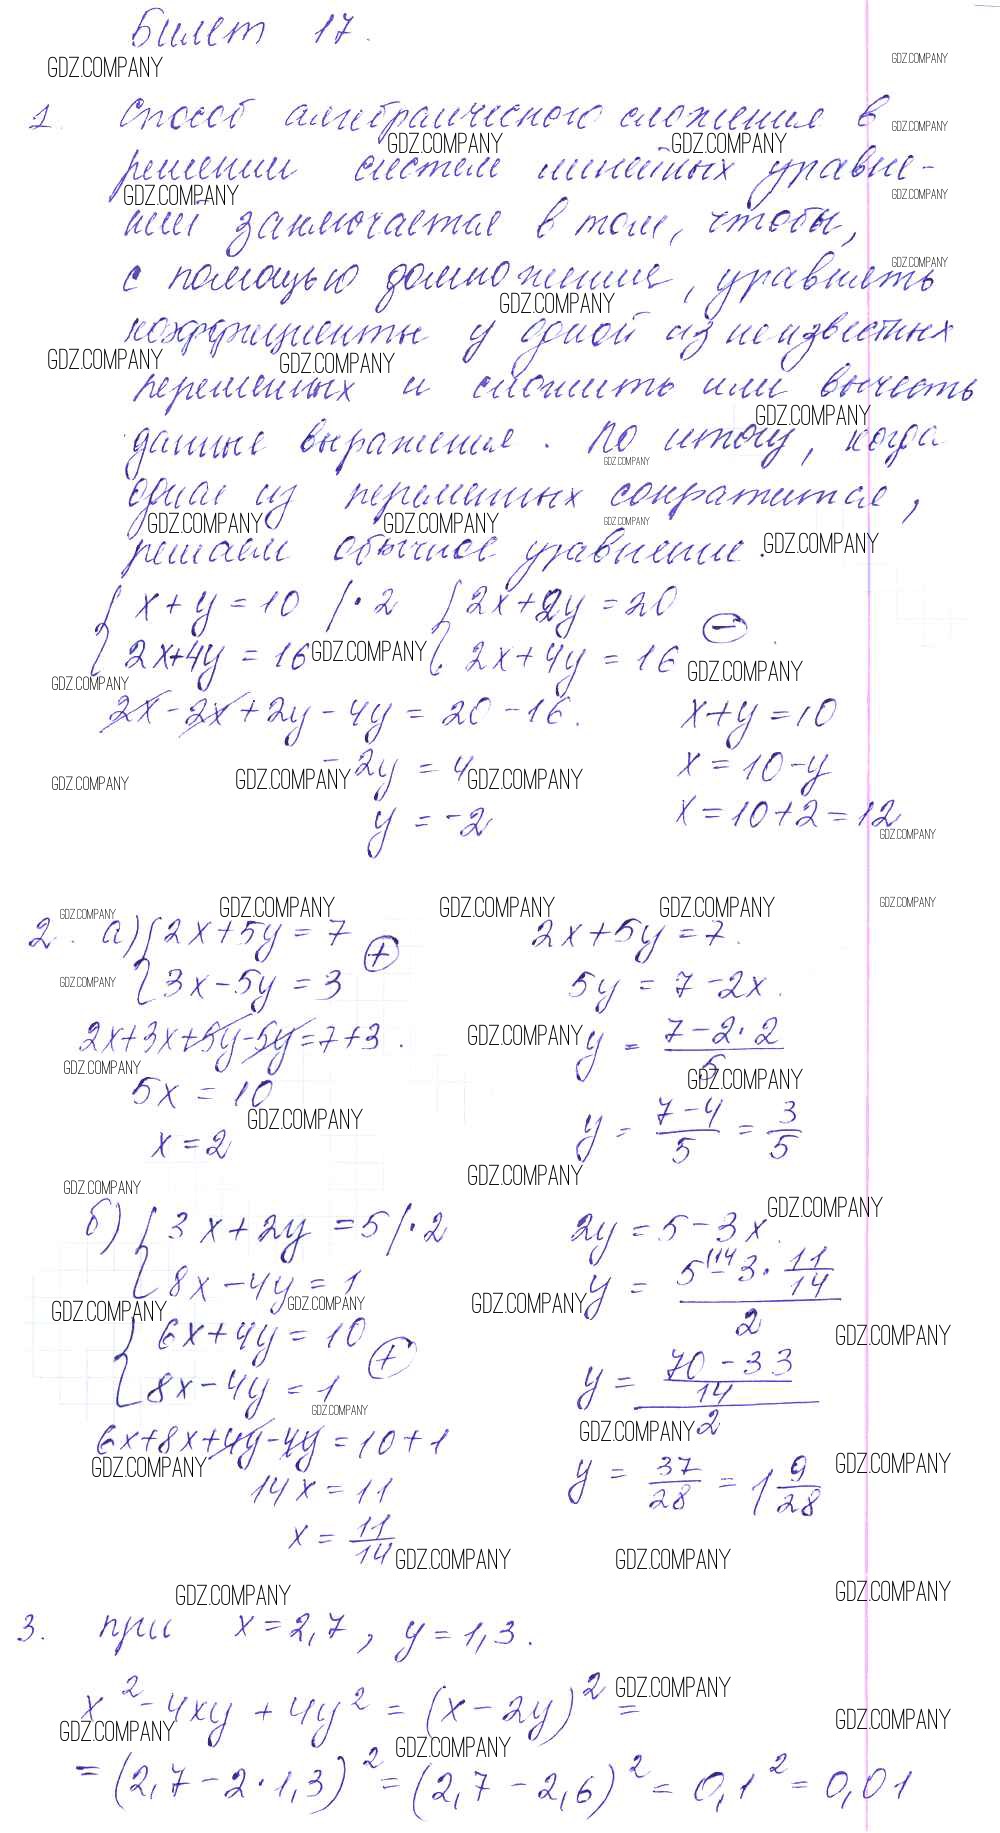 Билет 17.
1. Способ алгебраического сложения в
решении систем линейных уравне-
ний заключается в том, чтобы,
с помощью домножения, уравнять
коэффициенты у одной из неизвестных
переменных и сложить или вычесть
данные выражения. По итогу, когда
одна из переменных сократится,
решаем обычное уравнение.
{ x + y = 10 | · 2 { 2x + 2y = 20
{ 2x + 4y = 16 { 2x + 4y = 16 (−)
2x − 2x + 2y − 4y = 20 − 16. x + y = 10
−2y = 4 x = 10 − y
y = −2 x = 10 + 2 = 12
2. а) { 2x + 5y = 7 (+) 2x + 5y = 7.
{ 3x − 5y = 3 5y = 7 − 2x.
2x + 3x + 5y − 5y = 7 + 3. y = (7 − 2 · 2)/5
5x = 10
x = 2 y = (7 − 4)/5 = 3/5
б) { 3x + 2y = 5 | · 2 2y = 5 − 3x.
{ 8x − 4y = 1 y = (5 (14 − 3 · 11/14)/2
{ 6x + 4y = 10 (+)
{ 8x − 4y = 1 y = ((70 − 33)/14)/2
6x + 8x + 4y − 4y = 10 + 1
14x = 11 y = 37/28 = 1 9/28
x = 11/14
3. при x = 2,7, y = 1,3.
x² − 4xy + 4y² = (x − 2y)² =
= (2,7 − 2 · 1,3)² = (2,7 − 2,6)² = 0,1² = 0,01
GDZ.COMPANY